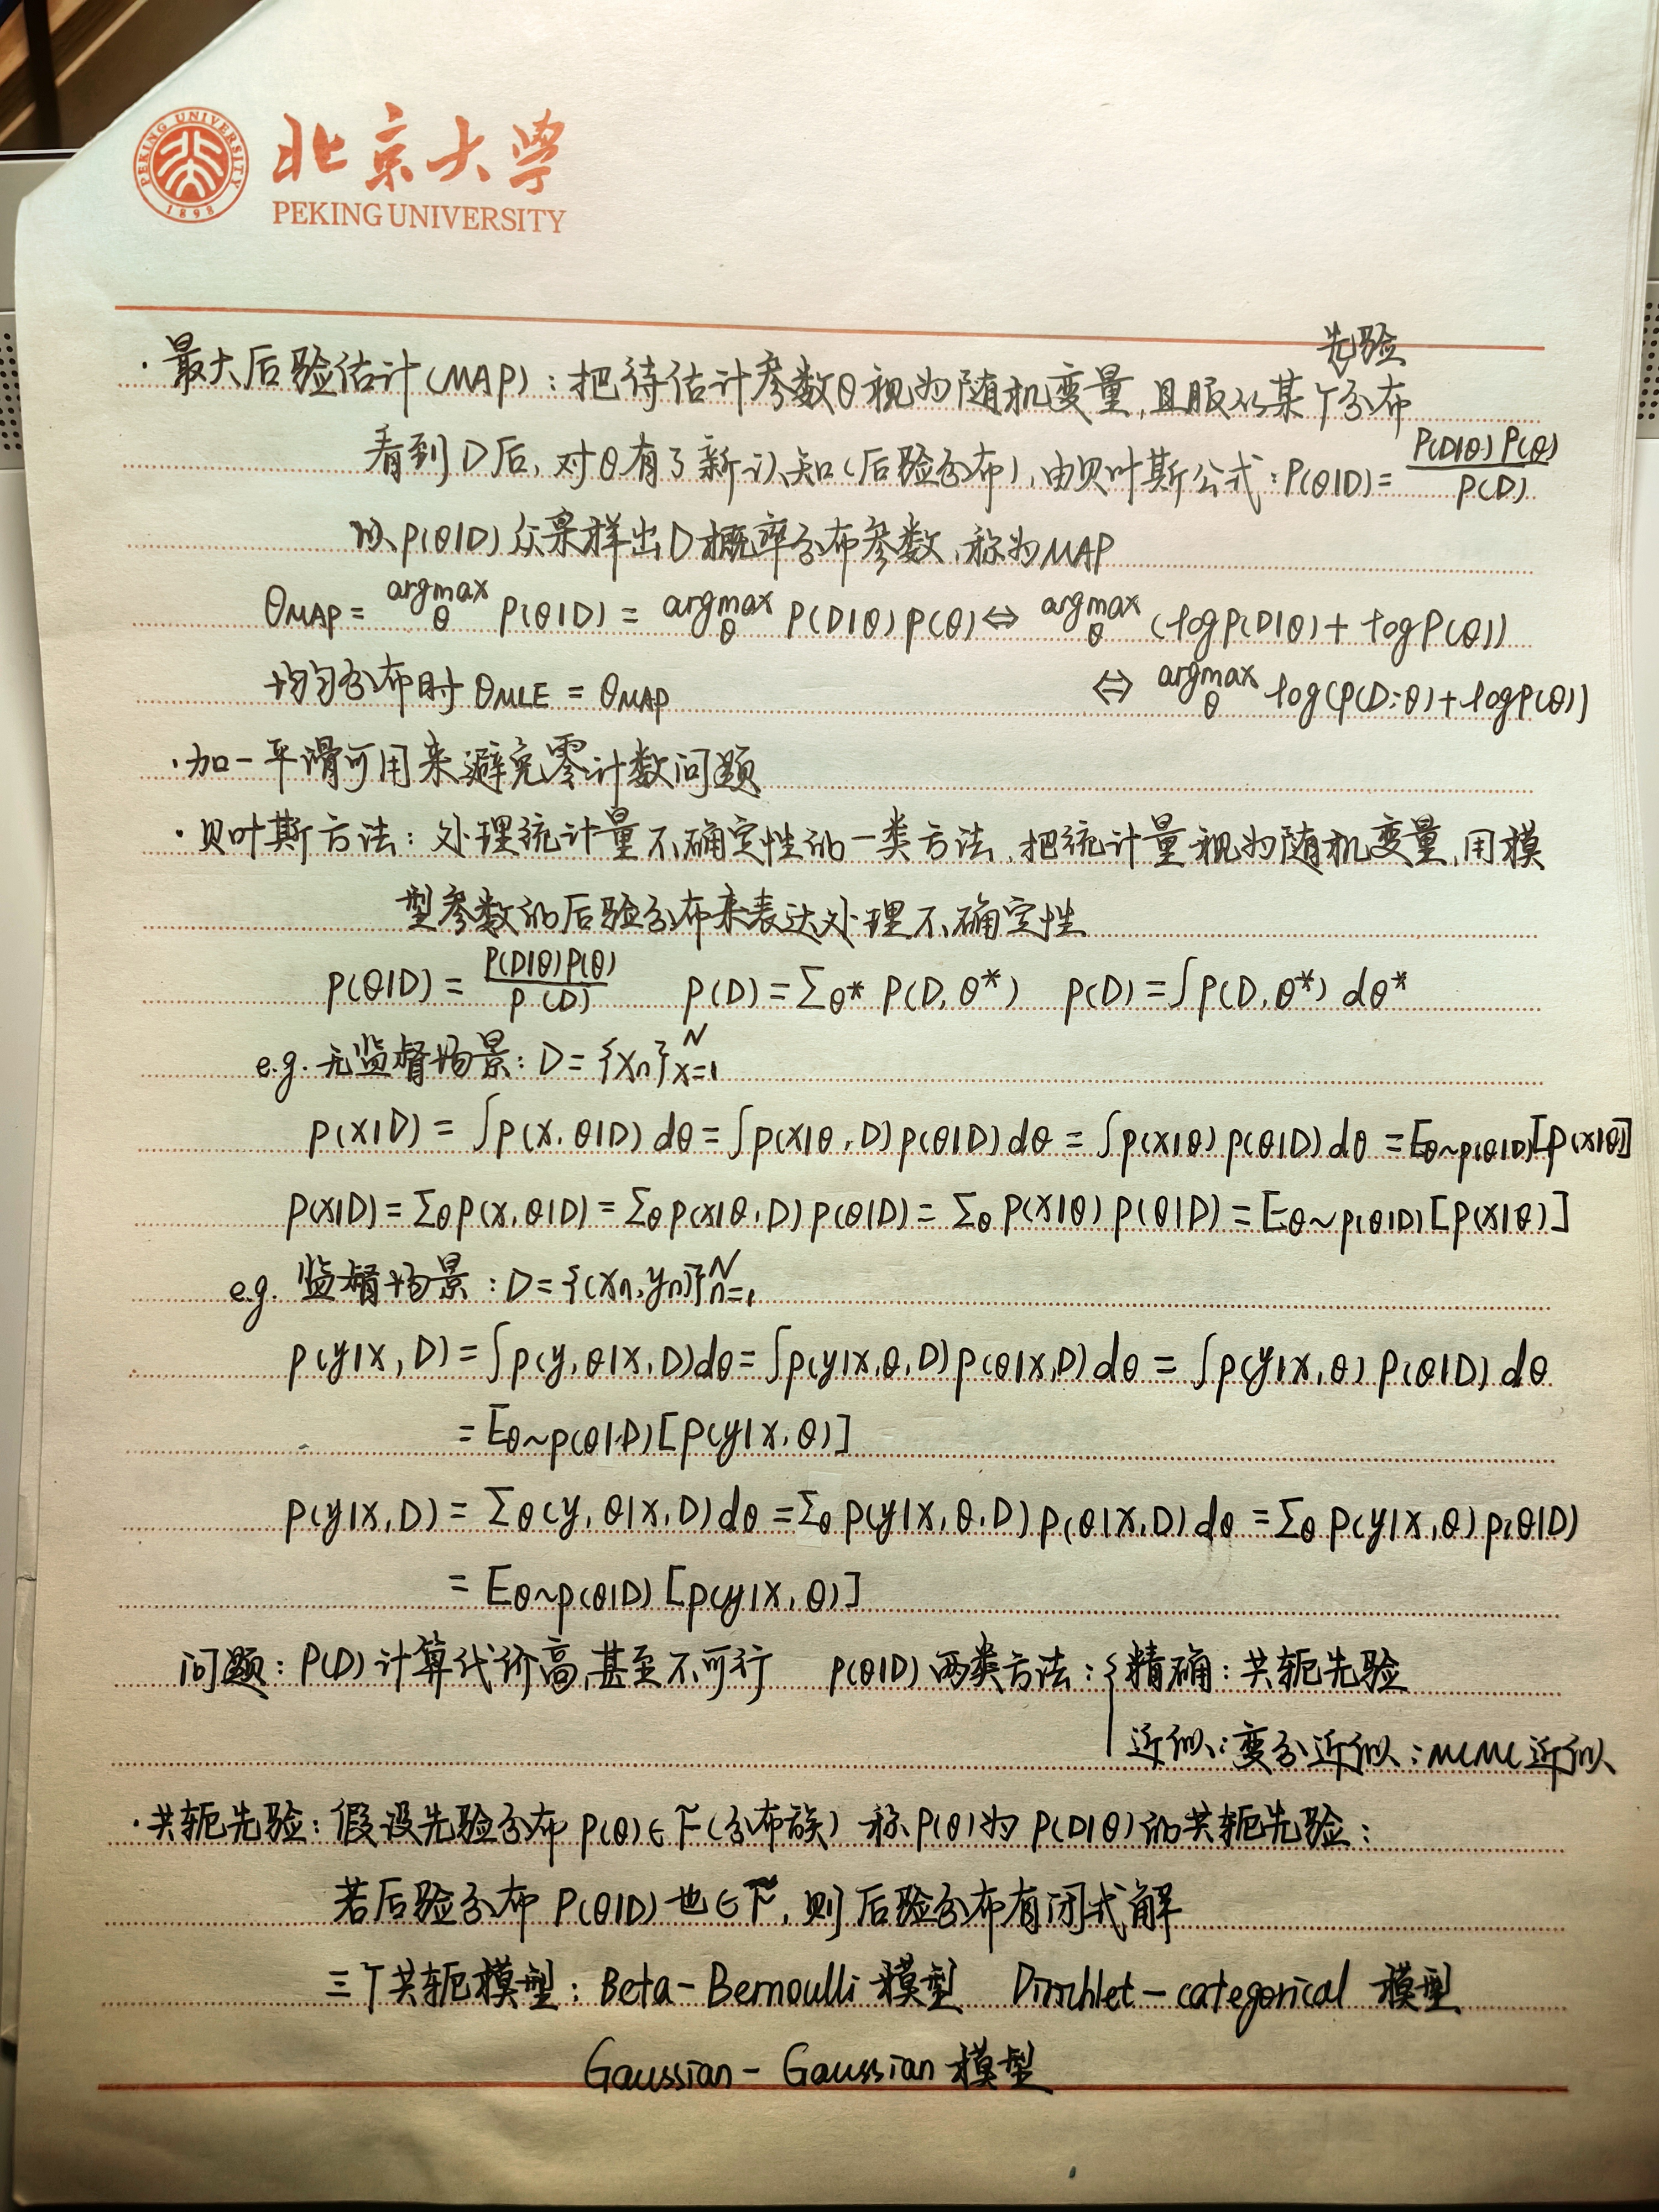 PEKING UNIVERSITY
1898
北京大学
PEKING UNIVERSITY
先验
·最大后验估计(MAP):把待估计参数θ视为随机变量,且服从某个分布
看到D后,对θ有了新认知(后验分布),由贝叶斯公式:P(θ|D)= P(D|θ)P(θ) / P(D)
以p(θ|D)众采样出D概率分布参数,称为MAP
θMAP = argmax θ P(θ|D) = argmax θ P(D|θ)p(θ) ⇔ argmax θ (logP(D|θ)+logP(θ))
均匀分布时θMLE = θMAP ⇔ argmax θ log(p(D;θ)+logp(θ))
·加一平滑可用来避免零计数问题
·贝叶斯方法:处理统计量不确定性的一类方法,把统计量视为随机变量,用模
型参数的后验分布来表达处理不确定性
p(θ|D) = P(D|θ)P(θ) / P(D) p(D)=Σθ* P(D,θ*) p(D)=∫p(D,θ*)dθ*
e.g.无监督场景:D={xn}ᴺx=1
p(x|D) = ∫p(x,θ|D)dθ = ∫p(x|θ,D)p(θ|D)dθ = ∫p(x|θ)p(θ|D)dθ = Eθ~p(θ|D)[p(x|θ)]
p(x|D)=Σθ p(x,θ|D) = Σθ p(x|θ,D)p(θ|D) = Σθ p(x|θ)p(θ|D) = Eθ~p(θ|D)[p(x|θ)]
e.g. 监督场景:D={(xn,yn)}ᴺn=1
p(y|x,D) = ∫p(y,θ|x,D)dθ = ∫p(y|x,θ,D)p(θ|x,D)dθ = ∫p(y|x,θ)p(θ|D)dθ
= Eθ~p(θ|D)[p(y|x,θ)]
p(y|x,D) = Σθ(y,θ|x,D)dθ = Σθ p(y|x,θ,D)p(θ|x,D)dθ = Σθ p(y|x,θ)p(θ|D)
= Eθ~p(θ|D)[p(y|x,θ)]
问题:P(D)计算代价高,甚至不可行 p(θ|D)两类方法:{精确:共轭先验
近似:变分近似;MCMC近似
·共轭先验:假设先验分布p(θ)∈F(分布族) 称p(θ)为p(D|θ)的共轭先验:
若后验分布P(θ|D)也∈F,则后验分布有闭式解
三个共轭模型:Beta-Bernoulli模型 Dirichlet-categorical 模型
Gaussian-Gaussian模型